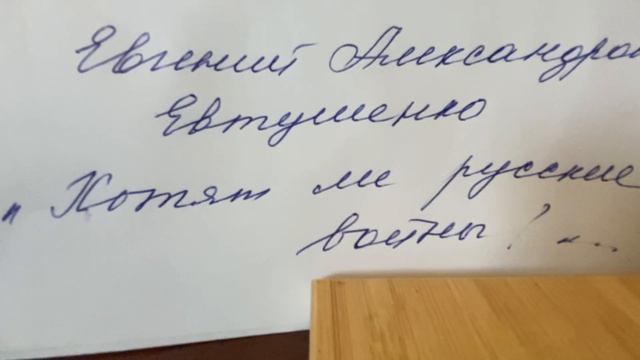 Евгений Александров
Евтушенко
"Хотят ли русские
войны?"...